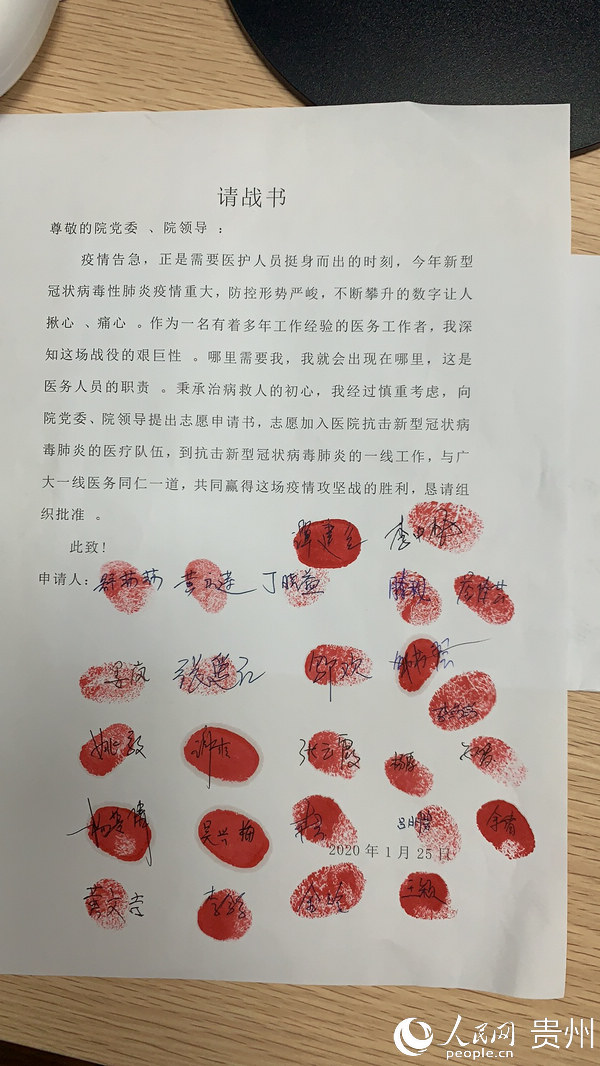 请战书
尊敬的院党委 、院领导 ：
疫情告急，正是需要医护人员挺身而出的时刻，今年新型
冠状病毒性肺炎疫情重大，防控形势严峻，不断攀升的数字让人
揪心 、痛心 。作为一名有着多年工作经验的医务工作者，我深
知这场战役的艰巨性 。哪里需要我，我就会出现在哪里，这是
医务人员的职责 。秉承治病救人的初心，我经过慎重考虑，向
院党委、院领导提出志愿申请书，志愿加入医院抗击新型冠状病
毒肺炎的医疗队伍，到抗击新型冠状病毒肺炎的一线工作，与广
大一线医务同仁一道，共同赢得这场疫情攻坚战的胜利，恳请组
织批准 。
此致！
申请人：
邹欢
姚毅
张云霞
吴兴梅
吕朋岸
余青
2020 年 1 月 25 日
黄文吉
王敏
人民网 贵州
people.cn